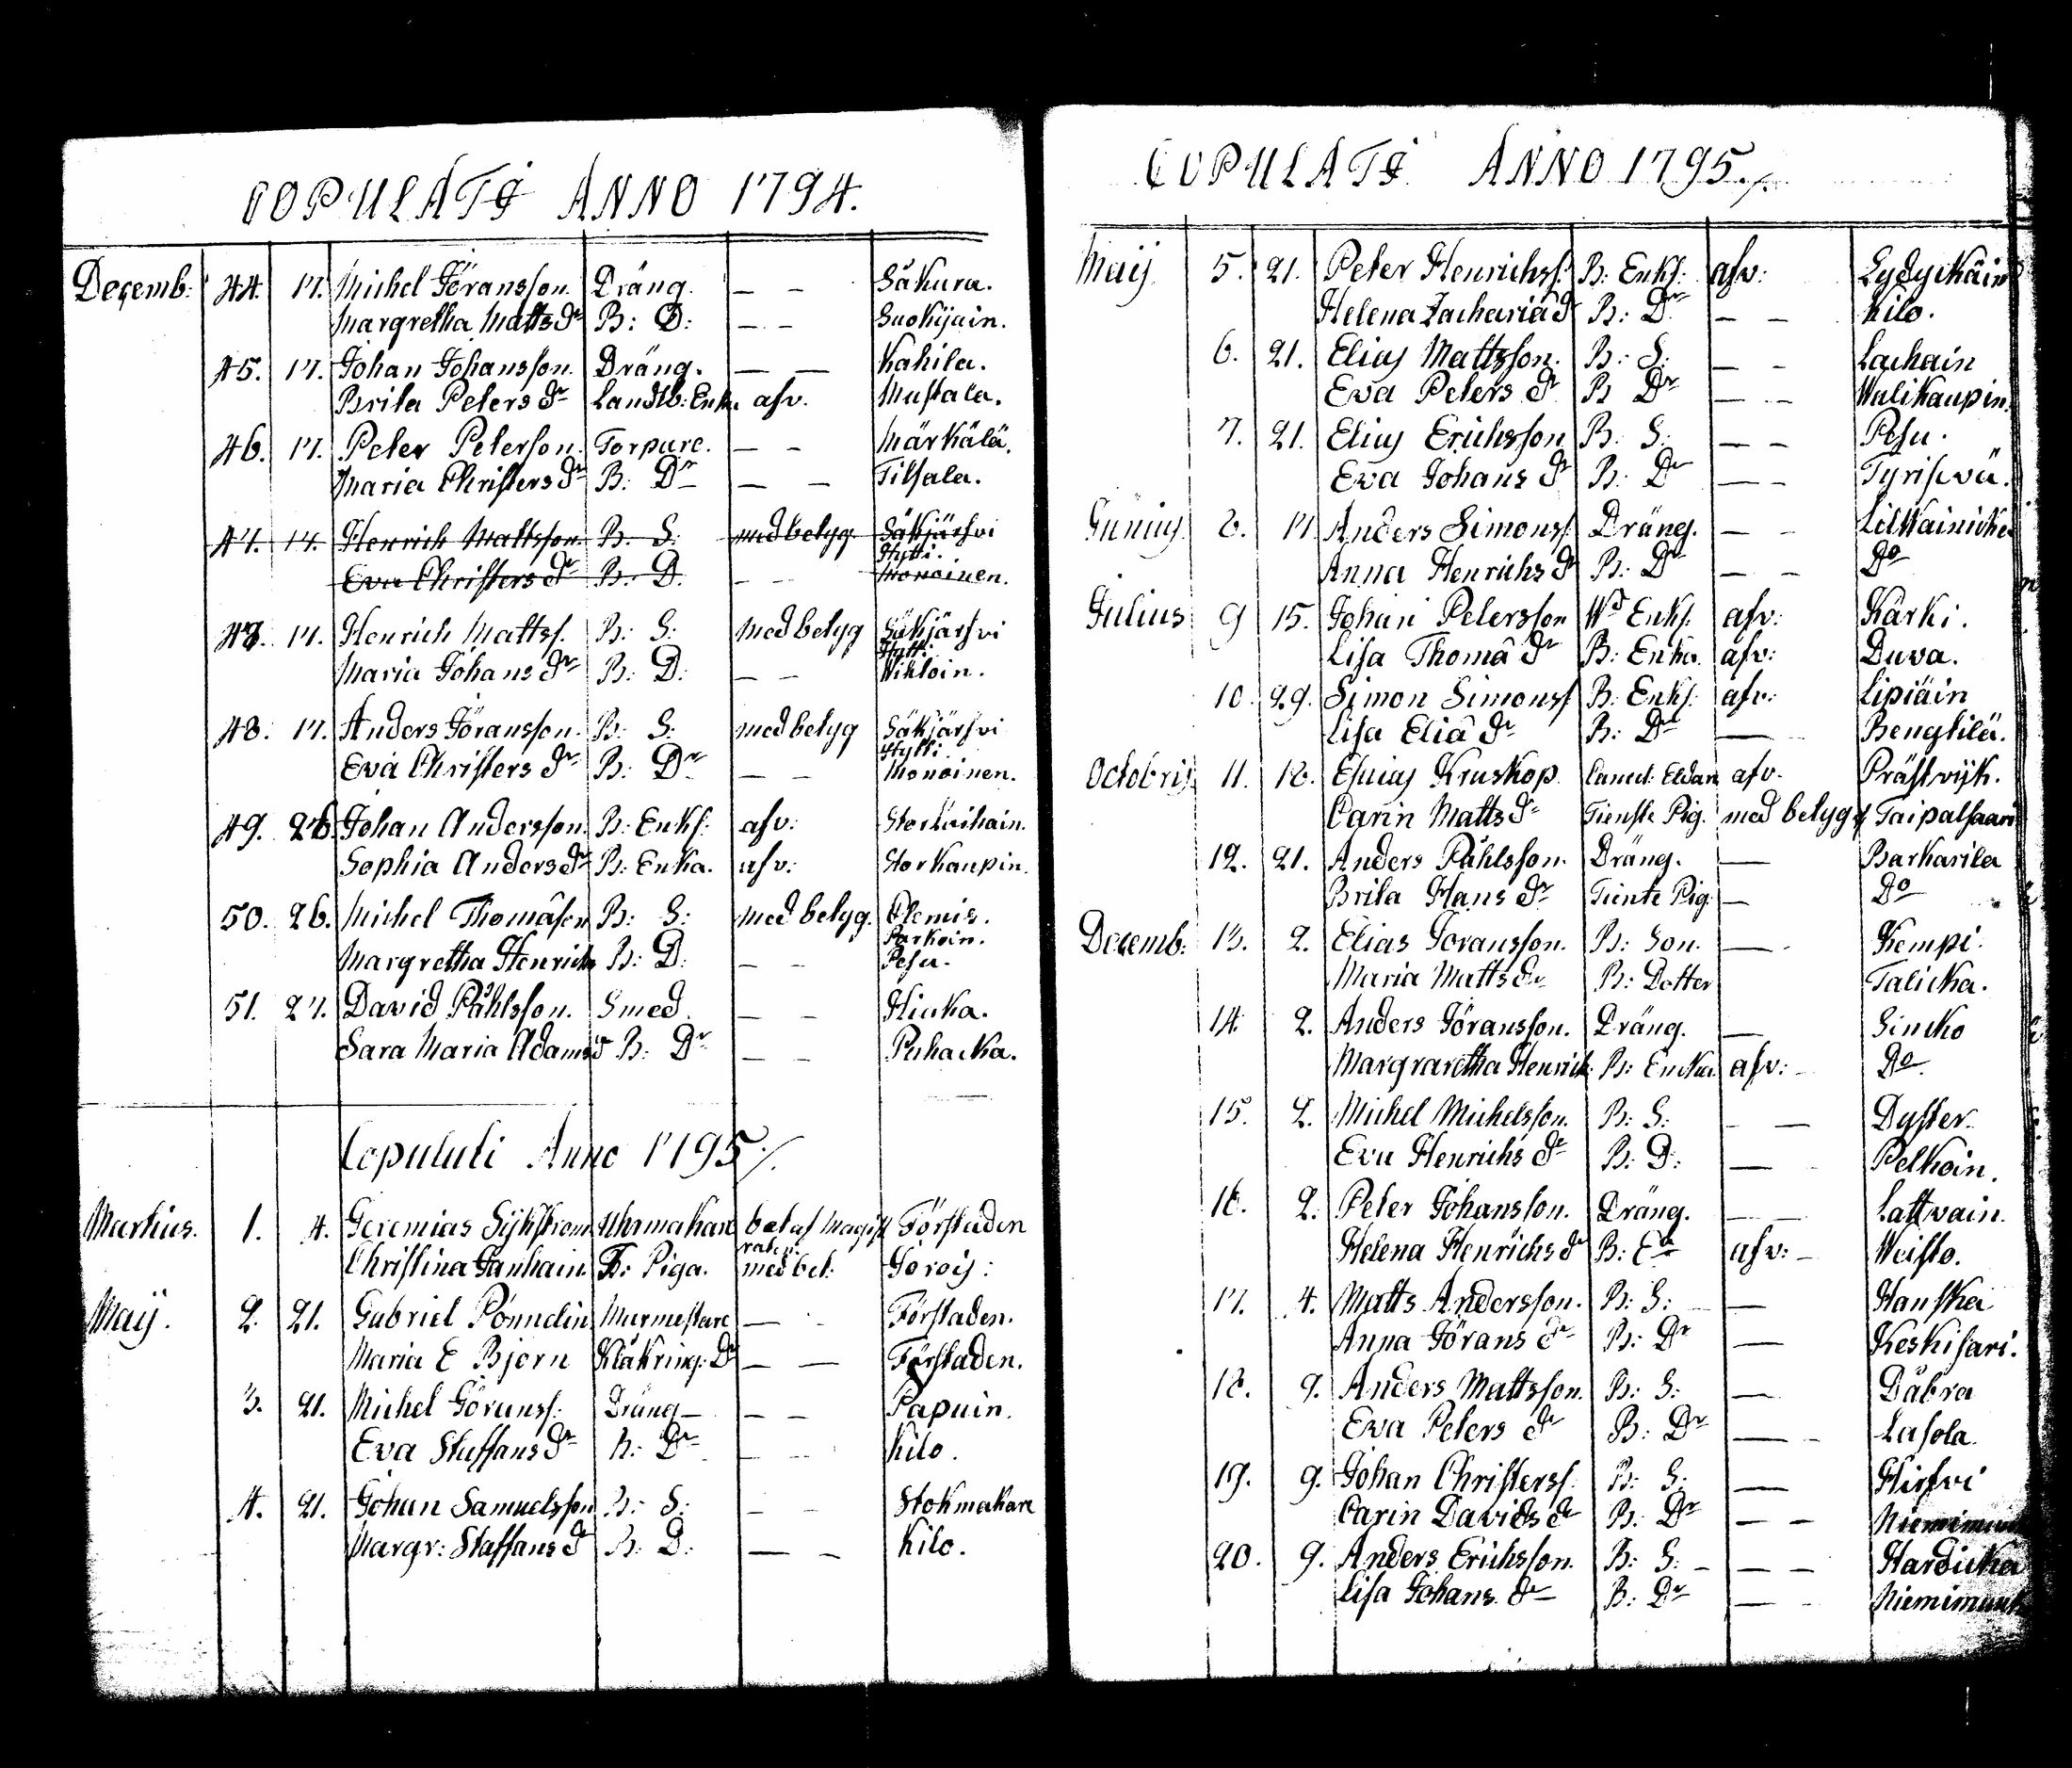 COPULATI ANNO 1794.
Decemb: 44. 17. Michel Göransson. Dräng. — — Säkura.
Margretha Matts dr B: D: — — Suokijain.
45. 17. Johan Johansson. Dräng. — — Kahila.
Brita Peters dr Landtb: Enka afv. Mustala.
46. 17. Peter Peterson. Torpare. — — Märkälä.
Maria Christers dr B: Dr — — Tilsala.
47. 17. Henrich Mattsson. B: S: med belyg Säkjärfvi
Hytti.
Eva Christers dr B: D. — — Monoinen.
47. 17. Henrich Mattss. B: S: med belyg Säkjärfvi
Hytti.
Maria Johans dr B: D: — — Wikloin.
48. 17. Anders Göransson. B: S: med belyg Säkjärfvi
Hytti.
Eva Christers dr B: Dr — — Monoinen.
49. 26. Johan Andersson. B: Enkf: afv:
Sophia Anders dr B: Enka. afv: Storkaupin.
50. 26. Michel Thomäson B: S: med belyg. Klemis.
Parkoin.
Margretha Henrichs B: D: — — Pesu.
51. 27. David Påhlsson. Smed. — — Hiuka.
Sara Maria Adams d B: Dr — — Puhacka.
Copulati Anno 1795./.
Martius. 1. 4. Jeremias Sijkström Uhrmakare bet af Magist Förstaden
raten.
Christina Janhain. T: Piga. med bet: Jorois:
Maij. 2. 21. Gabriel Pönndin Murmestare — - Förstaden.
Maria E Björn Kläkring: Dr — — Förstaden.
3. 21. Michel Göranss: Dräng — — — Papuin.
Eva Staffans dr B: Dr — — Kilo.
4. 21. Johan Samuelsson B: S: — — Stokmakare
Margr: Staffans d B: D: — — Kilo.
COPULATI ANNO 1795./.
Maij. 5. 21. Peter Henrichss: B: Enkf: afv:
Helena Zachariä dr B: Dr — — Kilo.
6. 21. Elias Mattsson. B: S: — — Lachain
Eva Peters dr B Dr — — Walikaupin.
7. 21. Elias Erichsson B: S: — — Pesu.
Eva Johans dr B: Dr — — Tyrisevä.
Junius 8. 17 Anders Simonss Dräng. — —
Anna Henrichs dr B: Dr — — Do
Julius 9 15. Johan Petersson Wd Enkf. afv: Kärki.
Lisa Thomä dr B: Enka. afv: Duva.
10. 29. Simon Simonss B: Enkf: afv: Lipiäin
Lisa Eliä dr B: Dr — Bengtilä.
Octobris. 11. 18. Esaias Kruskop. afv. Prästvijk.
Carin Matts dr Tienste Pig. med belyg Taipalsaari
12. 21. Anders Påhlsson. Dräng. — Barkarila
Brita Hans dr Tiente Pig — Do
Decemb: 13. 2. Elias Göransson. B: Son. — Kempi.
Maria Matts dr B: Dotter Talicka.
14. 2. Anders Göransson. Dräng. — Sincko
Margraretha Henrich B: Encka afv: - Do
15. 2. Michel Michelsson. B: S: — — Dyster.
Eva Henrichs dr B: D: — Pelkoin.
16. 2. Peter Johansson. Dräng. — — Lattvain.
Helena Henrichs dr B: Ea afv: - Weisto.
17. 4. Matts Andersson. B: S: — Hanska
Anna Görans dr B: Dr — Keskisari.
18. 9. Anders Mattsson. B: S: — Däbra
Eva Peters dr B: Dr — - Lasola.
19. 9. Johan Christerss: B: S: — Hirfvi
Carin Davids dr B: Dr — —
20. 9. Anders Erichsson. B: S: - — — Hardicka
Lisa Johans dr B: Dr — -